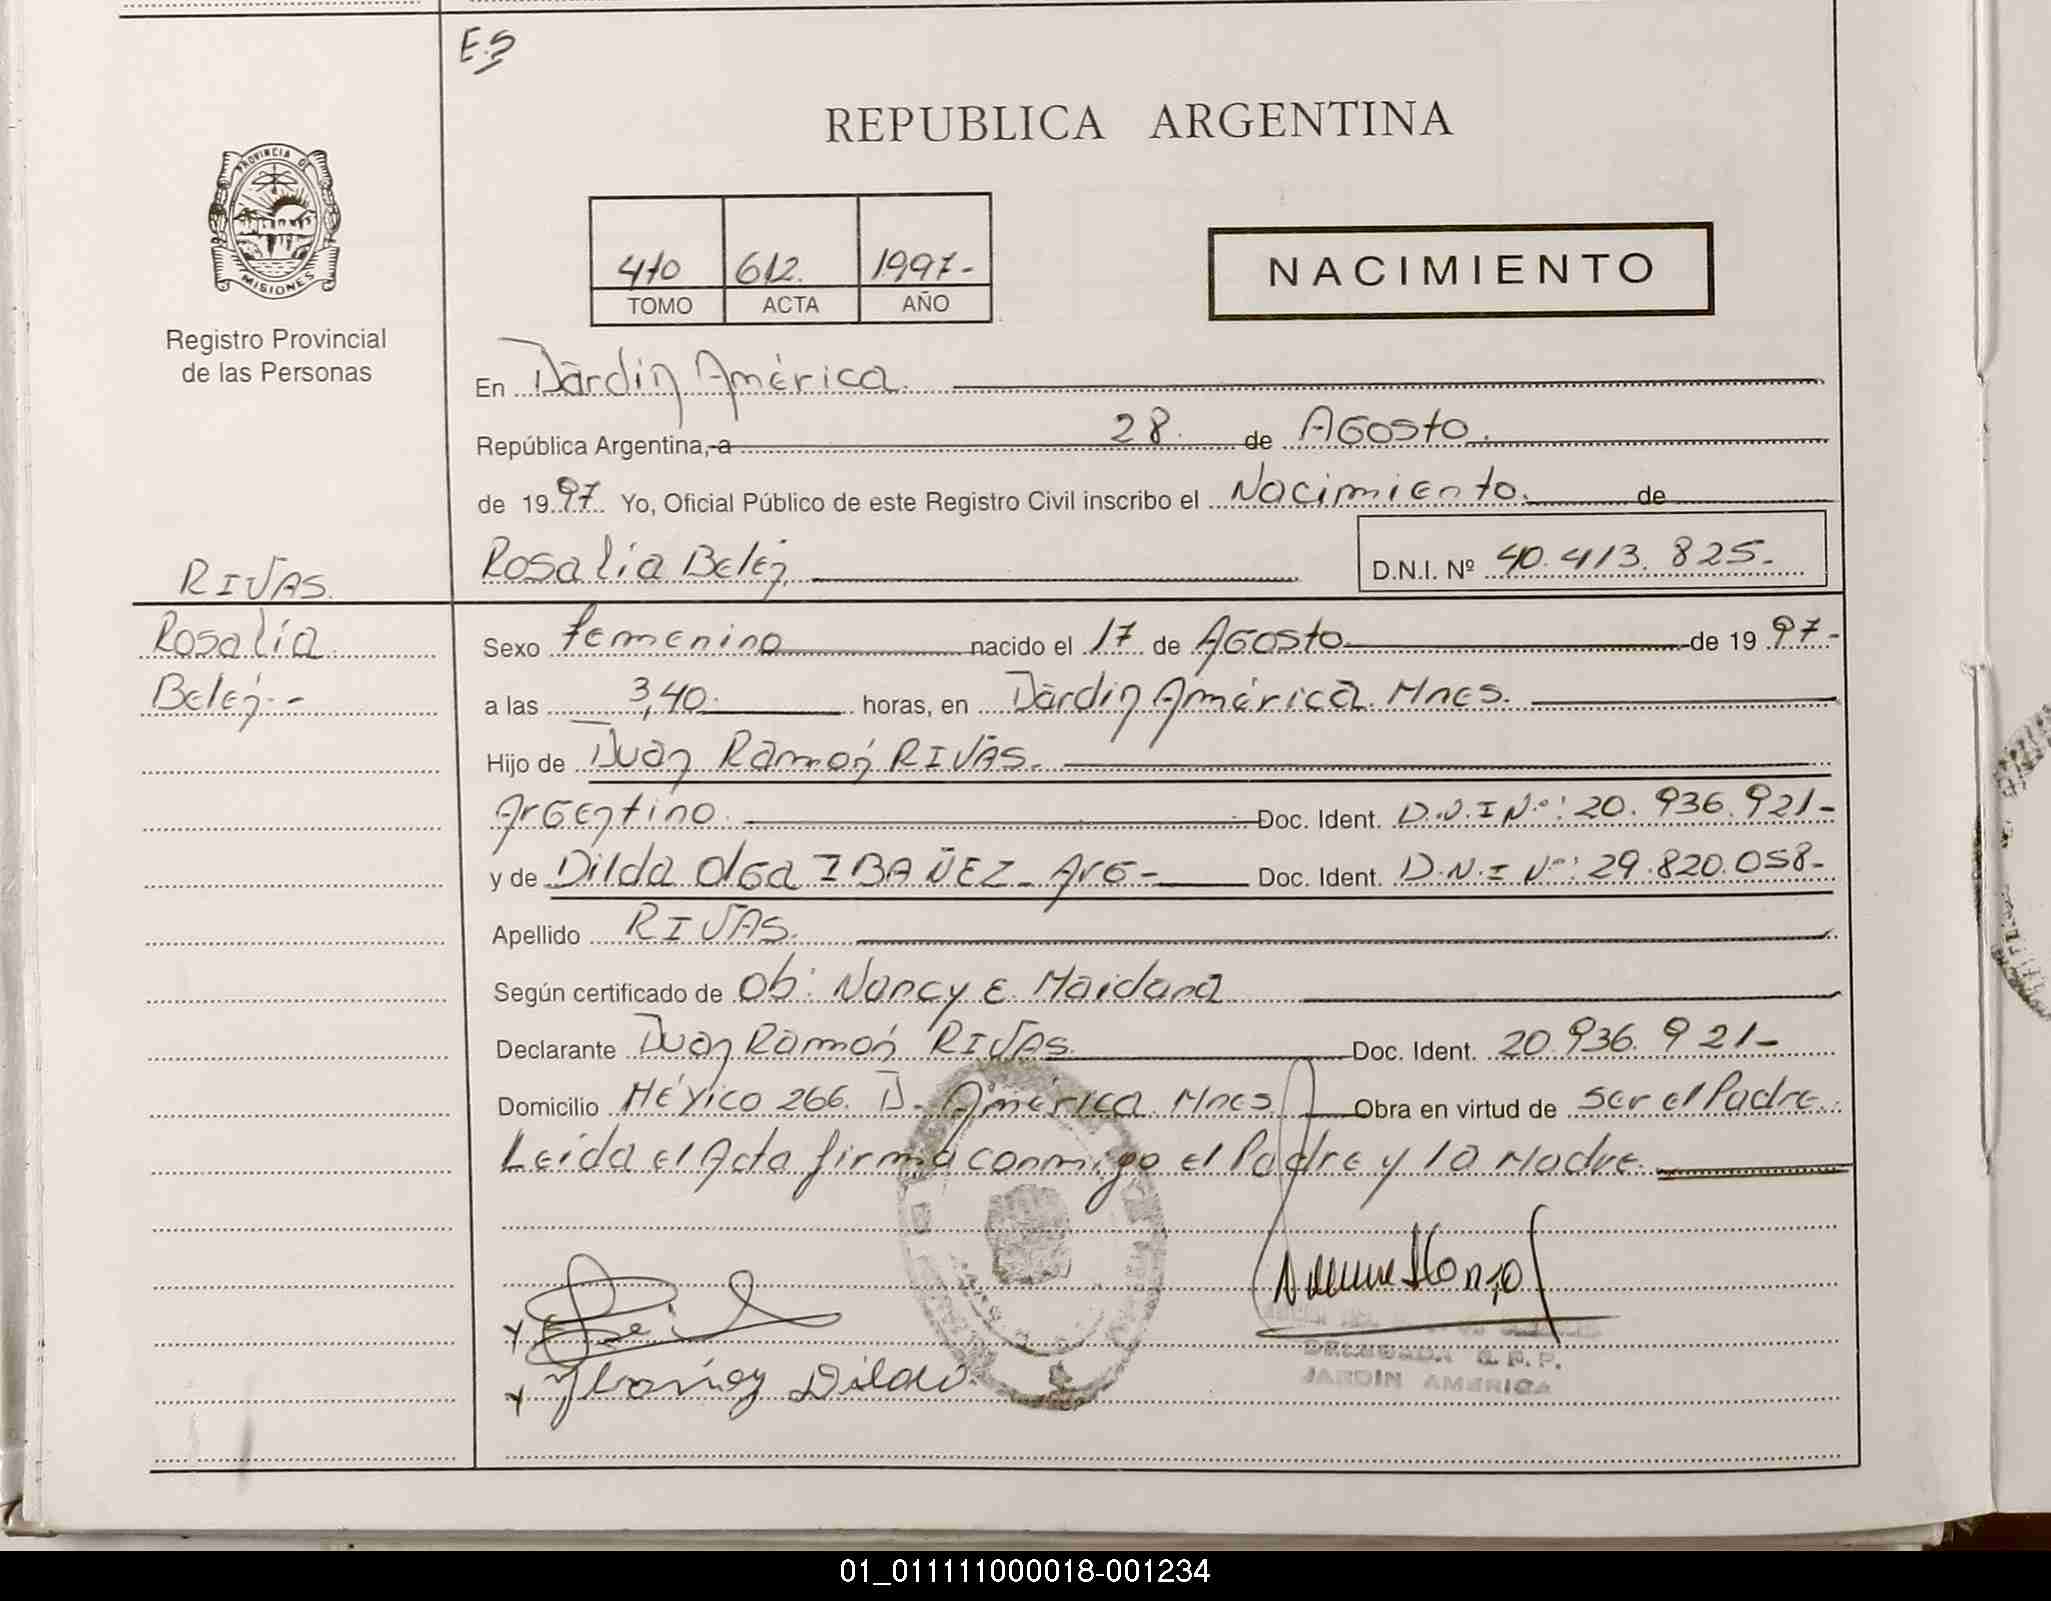 E.S
REPUBLICA ARGENTINA
PROVINCIA DE
MISIONES
Registro Provincial
de las Personas
410 612. 1997-
TOMO ACTA AÑO
NACIMIENTO
En Jardín América.
República Argentina, a 28. de Agosto.
de 1997 Yo, Oficial Público de este Registro Civil inscribo el Nacimiento. de
RIVAS.
Rosalía Belén
D.N.I. Nº 40.413.825.-
Rosalía
Belén.-
Sexo femenino nacido el 17 de Agosto de 1997-
a las 3,40. horas, en Jardín América. Mnes.
Hijo de Juan Ramón RIVAS.
Argentino. Doc. Ident. D.N.I Nº: 20.936.921-
y de Dilda Olga IBAÑEZ- Arg- Doc. Ident. D.N.I Nº: 29.820.058-
Apellido RIVAS.
Según certificado de Ob: Nancy E. Maidana
Declarante Juan Ramón RIVAS Doc. Ident. 20.936.921-
Domicilio México 266. J. América. Mnes Obra en virtud de ser el Padre.
Leída el Acta firma conmigo el Padre y la Madre.
Ibañez Dilda
DELEGADA R.P.P.
JARDIN AMERICA
01_011111000018-001234